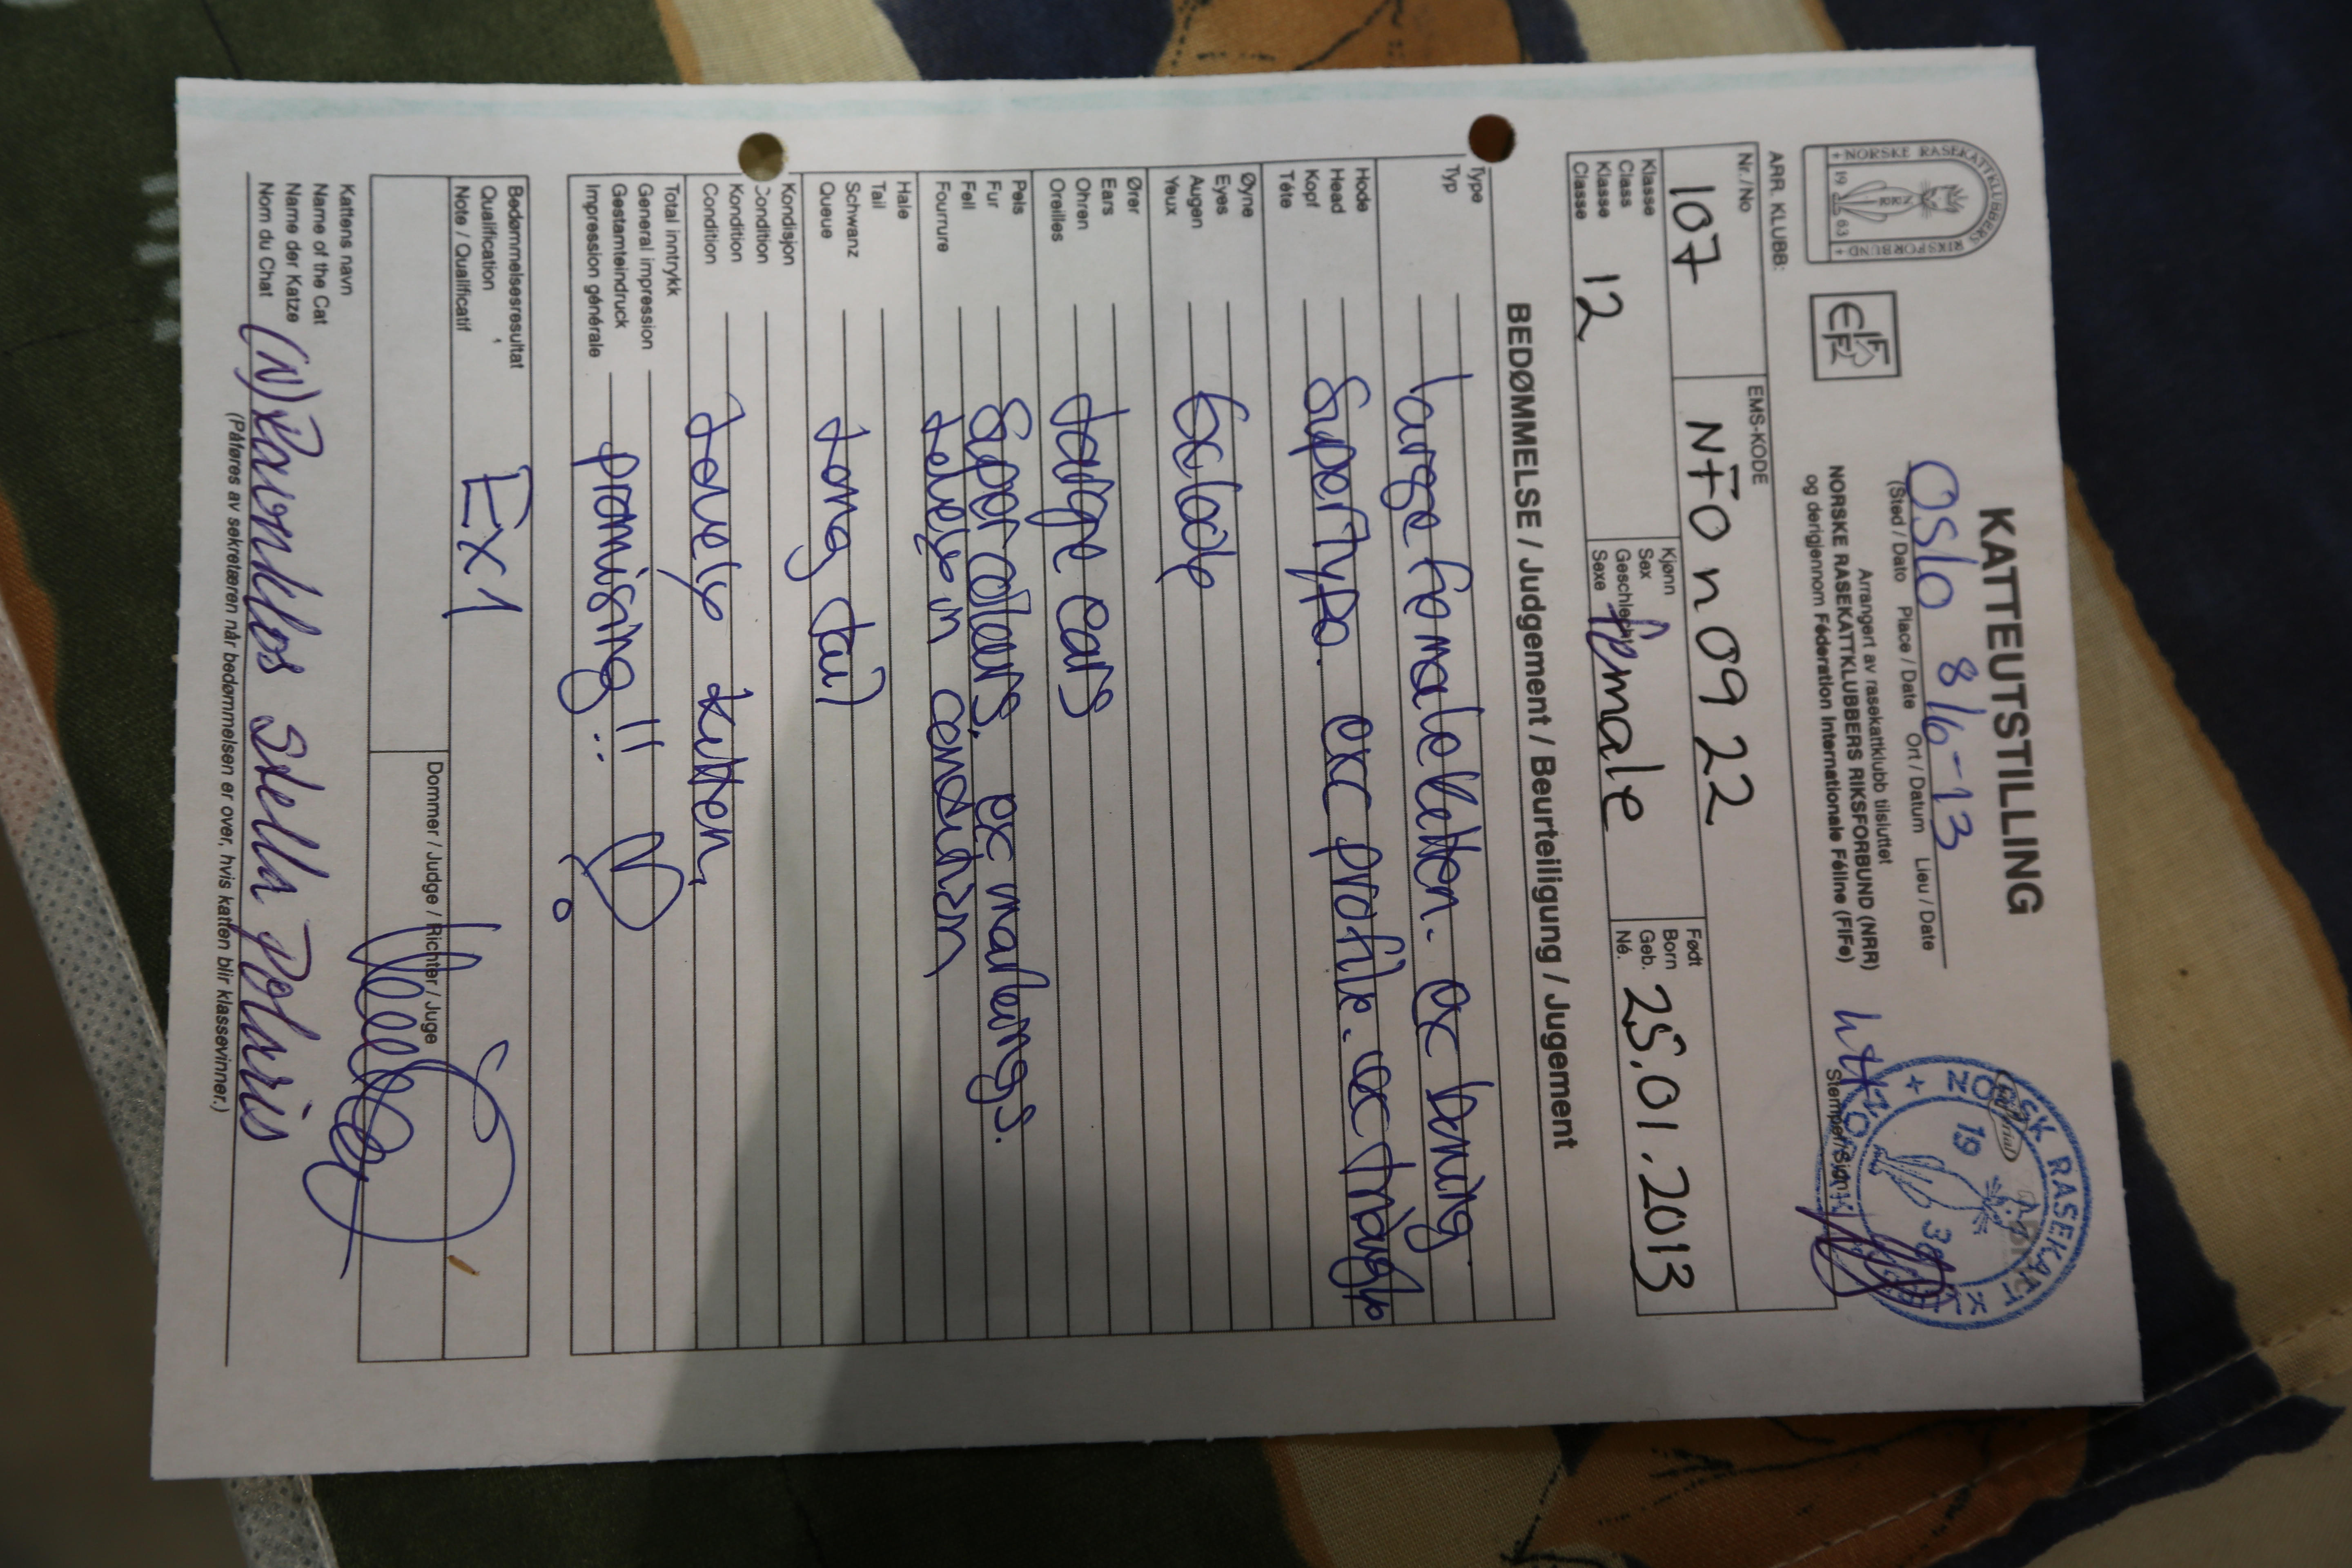 KATTEUTSTILLING
Oslo 8/6-13
(Sted / Dato Place / Date Ort / Datum Lieu / Date
Arrangert av rasekattklubb tilsluttet
NORSKE RASEKATTKLUBBERS RIKSFORBUND (NRR)
og derigjennom Féderation Internationale Féline (FIFe)
+ NORSKE RASEKATTKLUBBERS RIKSFORBUND +
19 63
NRR
FIFE
NORSK RASEKATT KLUBB
19 38
Stempel/Sign.
ARR. KLUBB:
Nr./No
107
EMS-KODE
NFO n 09 22
Klasse
Class
Klasse
Classe
12
Kjønn
Sex
Geschlecht
Sexe
female
Født
Born
Geb.
Né.
25.01.2013
BEDØMMELSE / Judgement / Beurteiligung / Jugement
Type
Typ
Large female kitten. ex boning
Hode
Head
Kopf
Téte
Super type. exc profile. exc triangle
Øyne
Eyes
Augen
Yeux
Ører
Ears
Ohren
Oreilles
Large ears
Pels
Fur
Fell
Fourrure
Super colours. ex markings.
lovely in condition
Hale
Tail
Schwanz
Queue
Long tail
Kondisjon
Condition
Kondition
Condition
Lovely kitten,
Total inntrykk
General impression
Gestamteindruck
Impression générale
promising!! ♡
Bedømmelsesresultat
Qualification
Note / Qualificatif
Ex1
Dommer / Judge / Richter / Juge
Kattens navn
Name of the Cat
Name der Katze
Nom du Chat
(N) Ravnklos Stella Polaris
(Påføres av sekretæren når bedømmelsen er over, hvis katten blir klassevinner.)